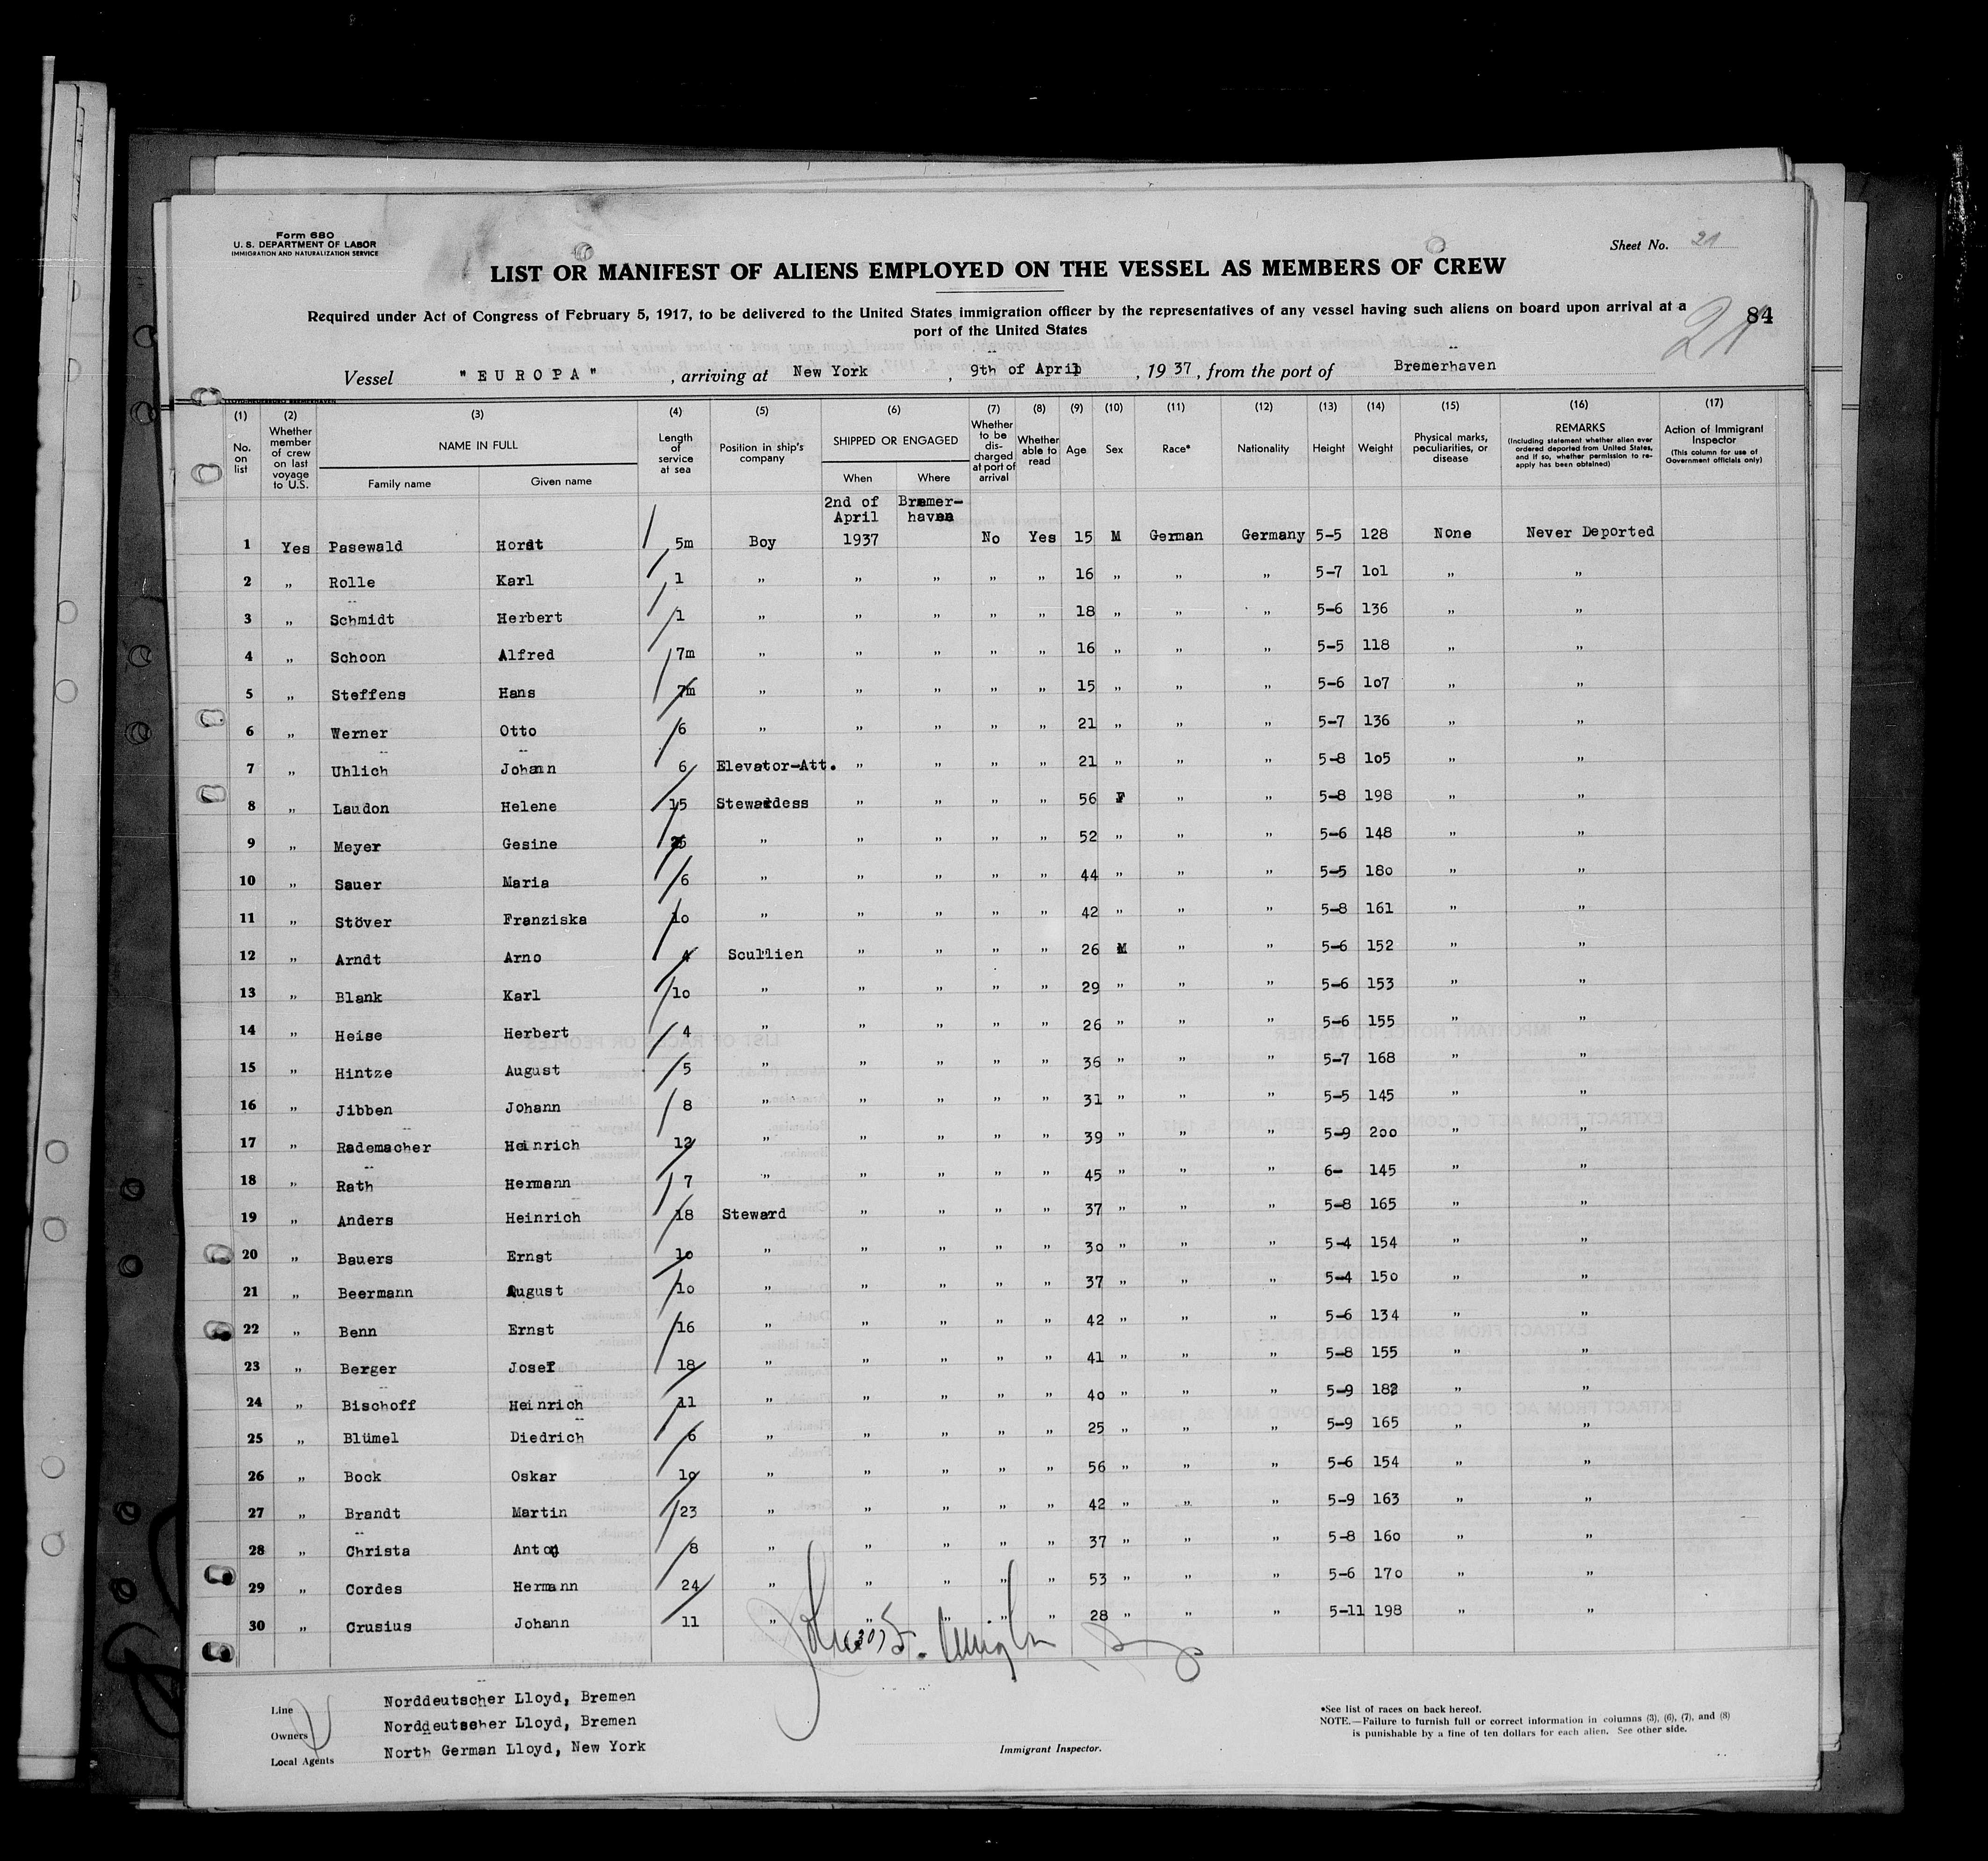 Form 680
U. S. DEPARTMENT OF LABOR
IMMIGRATION AND NATURALIZATION SERVICE
Sheet No. 21
LIST OR MANIFEST OF ALIENS EMPLOYED ON THE VESSEL AS MEMBERS OF CREW
Required under Act of Congress of February 5, 1917, to be delivered to the United States immigration officer by the representatives of any vessel having such aliens on board upon arrival at a
port of the United States
84
21
Vessel "EUROPA", arriving at New York, 9th of April, 1937, from the port of Bremerhaven
(1) (2) (3) (4) (5) (6) (7) (8) (9) (10) (11) (12) (13) (14) (15) (16) (17)
No. on list
Whether member of crew on last voyage to U.S.
NAME IN FULL
Family name Given name
Length of service at sea
Position in ship's company
SHIPPED OR ENGAGED
When Where
Whether to be discharged at port of arrival
Whether able to read
Age
Sex
Race*
Nationality
Height
Weight
Physical marks, peculiarities, or disease
REMARKS
(Including statement whether alien ever ordered deported from United States, and if so, whether permission to re-apply has been obtained)
Action of Immigrant Inspector
(This column for use of Government officials only)
2nd of Bremer-
April haven
1 Yes Pasewald Horst 5m Boy 1937 No Yes 15 M German Germany 5-5 128 None Never Deported
2 " Rolle Karl 1 " " " " " 16 " " " 5-7 101 " "
3 " Schmidt Herbert 1 " " " " " 18 " " " 5-6 136 " "
4 " Schoon Alfred 7m " " " " " 16 " " " 5-5 118 " "
5 " Steffens Hans 7m " " " " " 15 " " " 5-6 107 " "
6 " Werner Otto 6 " " " " " 21 " " " 5-7 136 " "
7 " Uhlich Johann 6 Elevator-Att. " " " " 21 " " " 5-8 105 " "
8 " Laudon Helene 15 Stewardess " " " " 56 F " " 5-8 198 " "
9 " Meyer Gesine " " " " " 52 " " " 5-6 148 " "
10 " Sauer Maria 6 " " " " " 44 " " " 5-5 180 " "
11 " Stöver Franziska 10 " " " " " 42 " " " 5-8 161 " "
12 " Arndt Arno 4 Scullien " " " " 26 M " " 5-6 152 " "
13 " Blank Karl 10 " " " " " 29 " " " 5-6 153 " "
14 " Heise Herbert 4 " " " " " 26 " " " 5-6 155 " "
15 " Hintze August 5 " " " " " 36 " " " 5-7 168 " "
16 " Jibben Johann 8 " " " " " 31 " " " 5-5 145 " "
17 " Rademacher Heinrich 12 " " " " " 39 " " " 5-9 200 " "
18 " Rath Hermann 7 " " " " " 45 " " " 6- 145 " "
19 " Anders Heinrich 18 Steward " " " " 37 " " " 5-8 165 " "
20 " Bauers Ernst 10 " " " " " 30 " " " 5-4 154 " "
21 " Beermann August 10 " " " " " 37 " " " 5-4 150 " "
22 " Benn Ernst 16 " " " " " 42 " " " 5-6 134 " "
23 " Berger Josef 18 " " " " " 41 " " " 5-8 155 " "
24 " Bischoff Heinrich 11 " " " " " 40 " " " 5-9 182 " "
25 " Blümel Diedrich 6 " " " " " 25 " " " 5-9 165 " "
26 " Bock Oskar 10 " " " " " 56 " " " 5-6 154 " "
27 " Brandt Martin 23 " " " " " 42 " " " 5-9 163 " "
28 " Christa Anton 8 " " " " " 37 " " " 5-8 160 " "
29 " Cordes Hermann 24 " " " " " 53 " " " 5-6 170 " "
30 " Crusius Johann 11 " " " " " 28 " " " 5-11 198 " "
Line Norddeutscher Lloyd, Bremen
Owners Norddeutscher Lloyd, Bremen
Local Agents North German Lloyd, New York
Immigrant Inspector.
*See list of races on back hereof.
NOTE.—Failure to furnish full or correct information in columns (3), (6), (7), and (8)
is punishable by a fine of ten dollars for each alien. See other side.